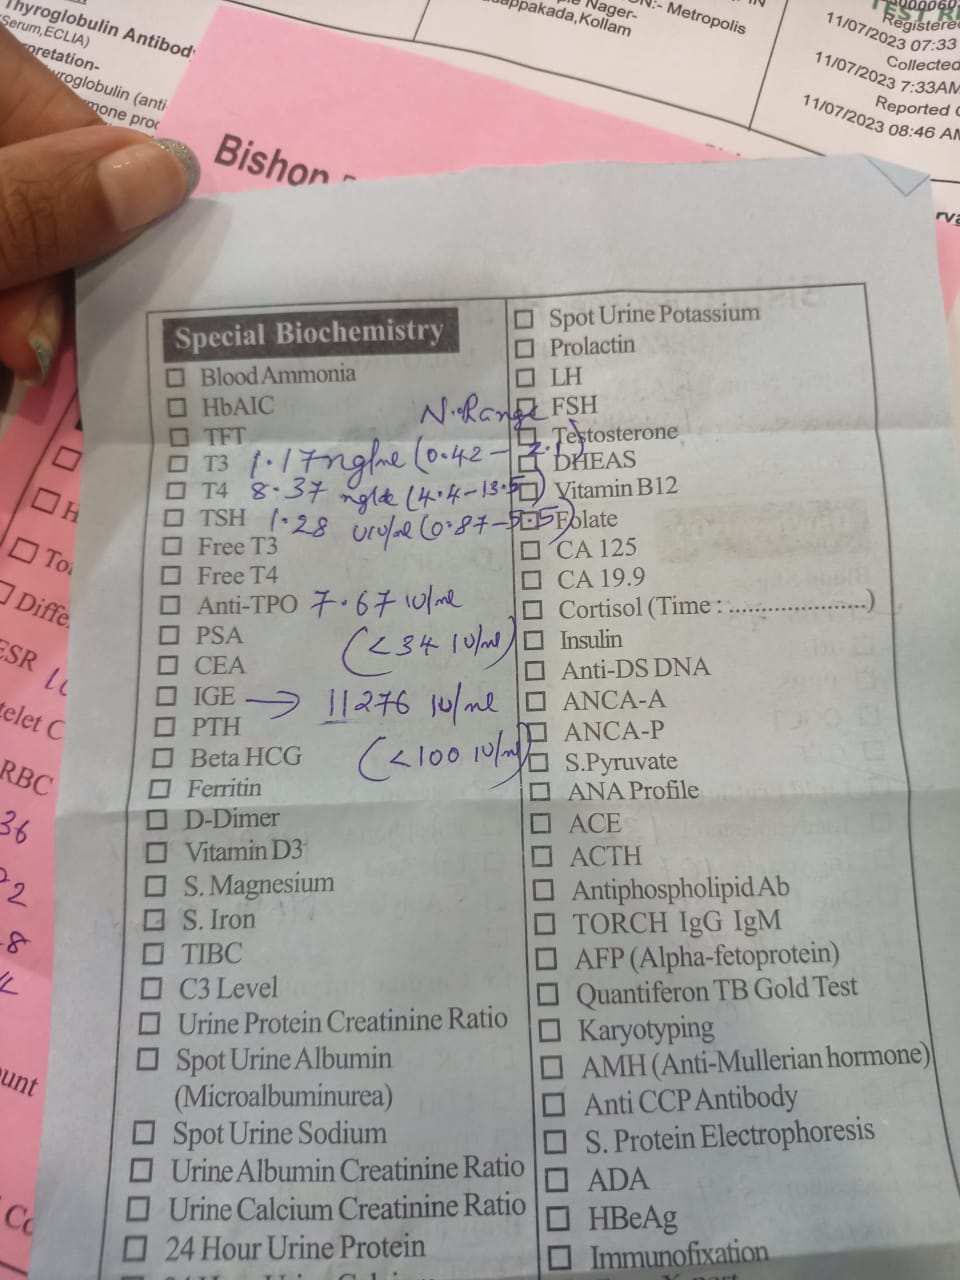 Thyroglobulin Antibody
(Serum,ECLIA)
ON:- Metropolis
Nager-
Kollam
TEST
Registered
11/07/2023 07:33
Collected
11/07/2023 7:33AM
Reported
11/07/2023 08:46 AM
Bishop
Special Biochemistry
Blood Ammonia
HbAIC
N. Range
TFT
T3 1.17 ng/ml (0.42 - 2.1)
T4 8.37 ng/dl (4.4-13.5)
TSH 1.28 uIU/ml (0.87-5.5)
Free T3
Free T4
Anti-TPO 7.67 IU/ml
PSA (<34 IU/ml)
CEA
IGE → 11276 IU/ml
PTH
Beta HCG (<100 IU/ml)
Ferritin
D-Dimer
Vitamin D3
S. Magnesium
S. Iron
TIBC
C3 Level
Urine Protein Creatinine Ratio
Spot Urine Albumin
(Microalbuminurea)
Spot Urine Sodium
Urine Albumin Creatinine Ratio
Urine Calcium Creatinine Ratio
24 Hour Urine Protein
Spot Urine Potassium
Prolactin
LH
FSH
Testosterone
DHEAS
Vitamin B12
Folate
CA 125
CA 19.9
Cortisol (Time : .....................)
Insulin
Anti-DS DNA
ANCA-A
ANCA-P
S.Pyruvate
ANA Profile
ACE
ACTH
Antiphospholipid Ab
TORCH IgG IgM
AFP (Alpha-fetoprotein)
Quantiferon TB Gold Test
Karyotyping
AMH (Anti-Mullerian hormone)
Anti CCP Antibody
S. Protein Electrophoresis
ADA
HBeAg
Immunofixation
ESR
RBC
36